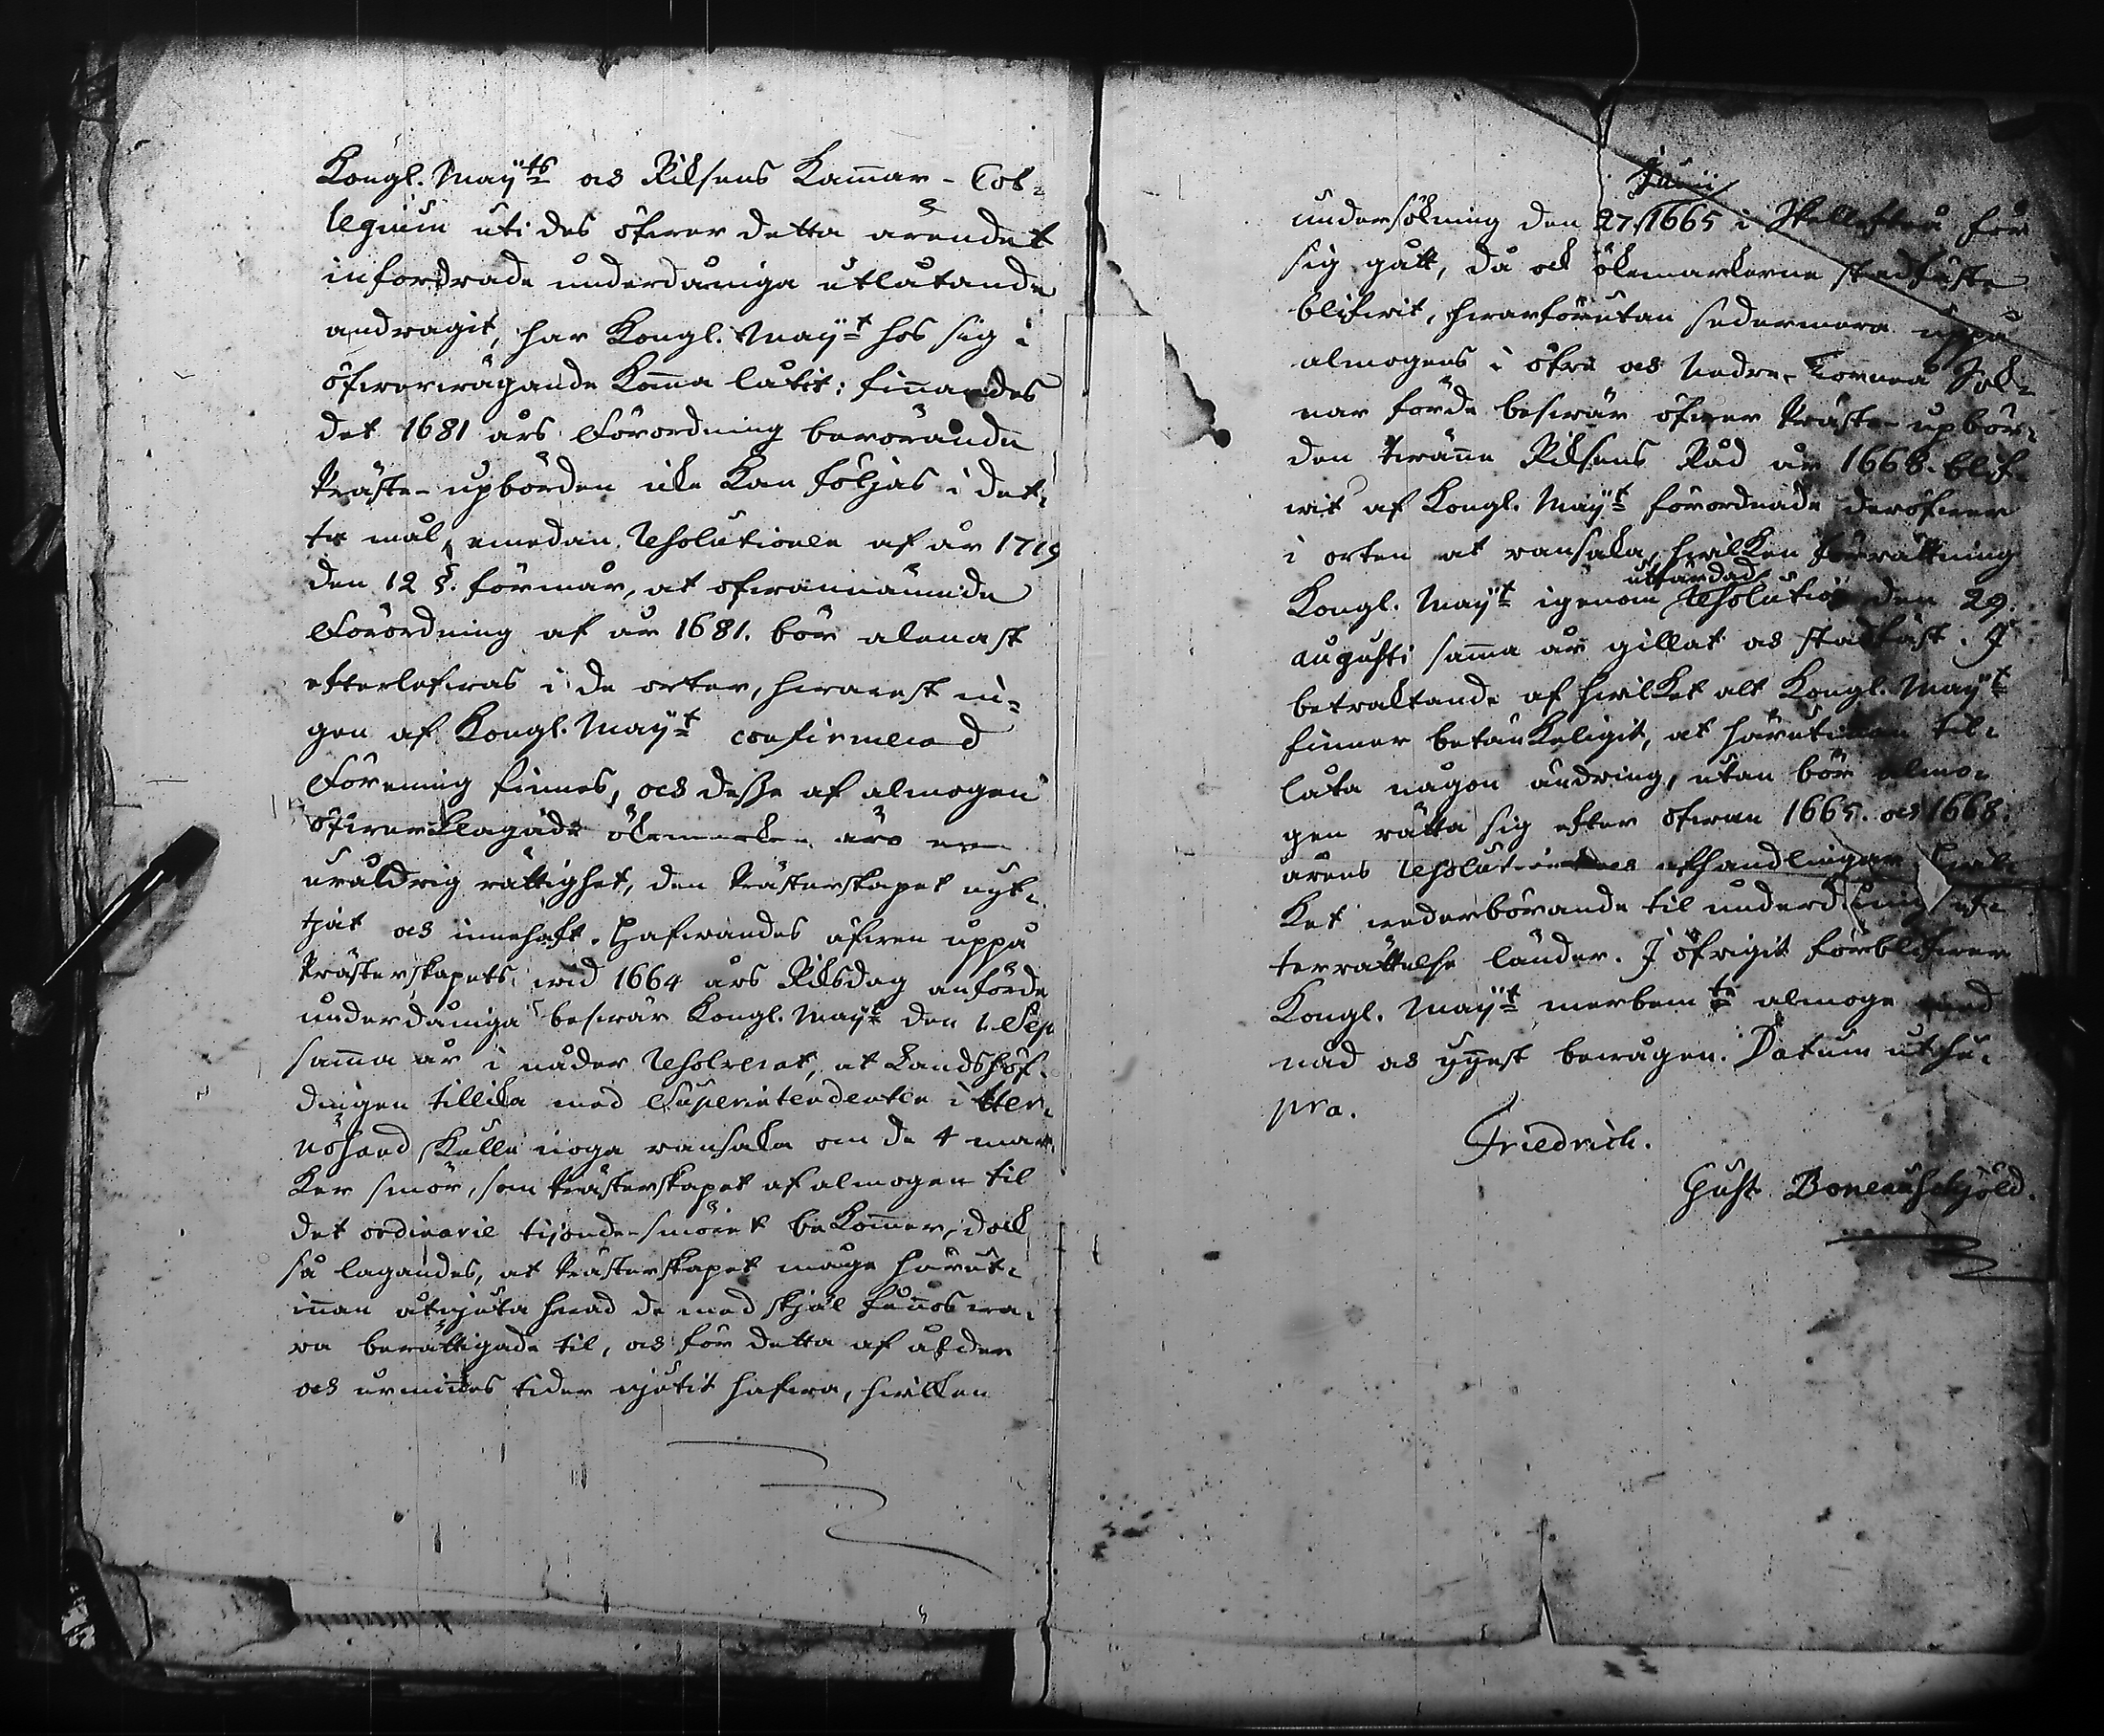 Kongl. Maÿ:ts och Riksens Kammar-Col-
legium uti des öfwer detta ärendet
infordrade underdåniga utlåtande
andragit, har Kongl. Maÿ:t hos sig i
öfwerwägande komma låtit: finnandes
det 1681 års Förordning berörande
Präste-upbörden icke kan följas i det-
ta mål, emedan Resolutionen af år 1719
den 12 §. förmår, at ofwannämnde
Förordning af år 1681. bör alenast
efterlefwas i de orter, hwarest in-
gen af Kongl. Maÿ:t confirmerad
Förening finnes, och desse af almogen
öfwerklagade ökemarker äro en
uråldrig rättighet, den Prästerskapet nyt-
tjat och innehaft. Hafwandes äfwen uppå
Prästerskapets wid 1664 års Riksdag anförde
underdåniga beswär Kongl. Maÿ:t den 1. Sep
samma år i nåder Resolverat, at Landshöf-
dingen tillika med Superintendenten i Her-
nösand skulle noga ransaka om de 4 mar-
ker smör, som Prästerskapet af almogen til
det ordinarie tijonde-smöret bekommer, dock
så lagandes, at Prästerskapet måge härut-
innan åtnjuta hwad de med skjäl funnos wa-
ra berättigade til, och för detta af ålder
och urminnes tider njutit hafwa, hwilken
Junii
undersökning den 27. 1665 i Skellefteå för
sig gått, då ock ökemarkerne stadfäste
blifwit, hwarförutan sedermera uppå
almogens i öfre och Nedre-Torneå Sok-
nar förde beswär öfwer Präste-upbör-
den twänne Riksens Råd år 1668. blif-
wit af Kongl. Maÿ:t förordnade deröfwer
i orten at ransaka, hwilken förrättning
utfärdad
Kongl. Maÿ:t igenom Resolution den 29.
augusti samma år gillat och stadfäst. I
betraktande af hwilket alt Kongl. Maÿ:t
finner betänkeligit, at härutinnan til-
låta någon ändring, utan bör almo-
gen rätta sig efter ofwan 1665. och 1668.
årens Resolutioner afhandlingar, Hwil-
ket wederbörande til underdånig ef-
terrättelse länder. I öfrigit förblifwer
Kongl. Maÿ:t merbem:te almoge med
nåd och ynnest bewågen. Datum ut su-
pra.
Friedrich.
Gust. Boneauschjöld.